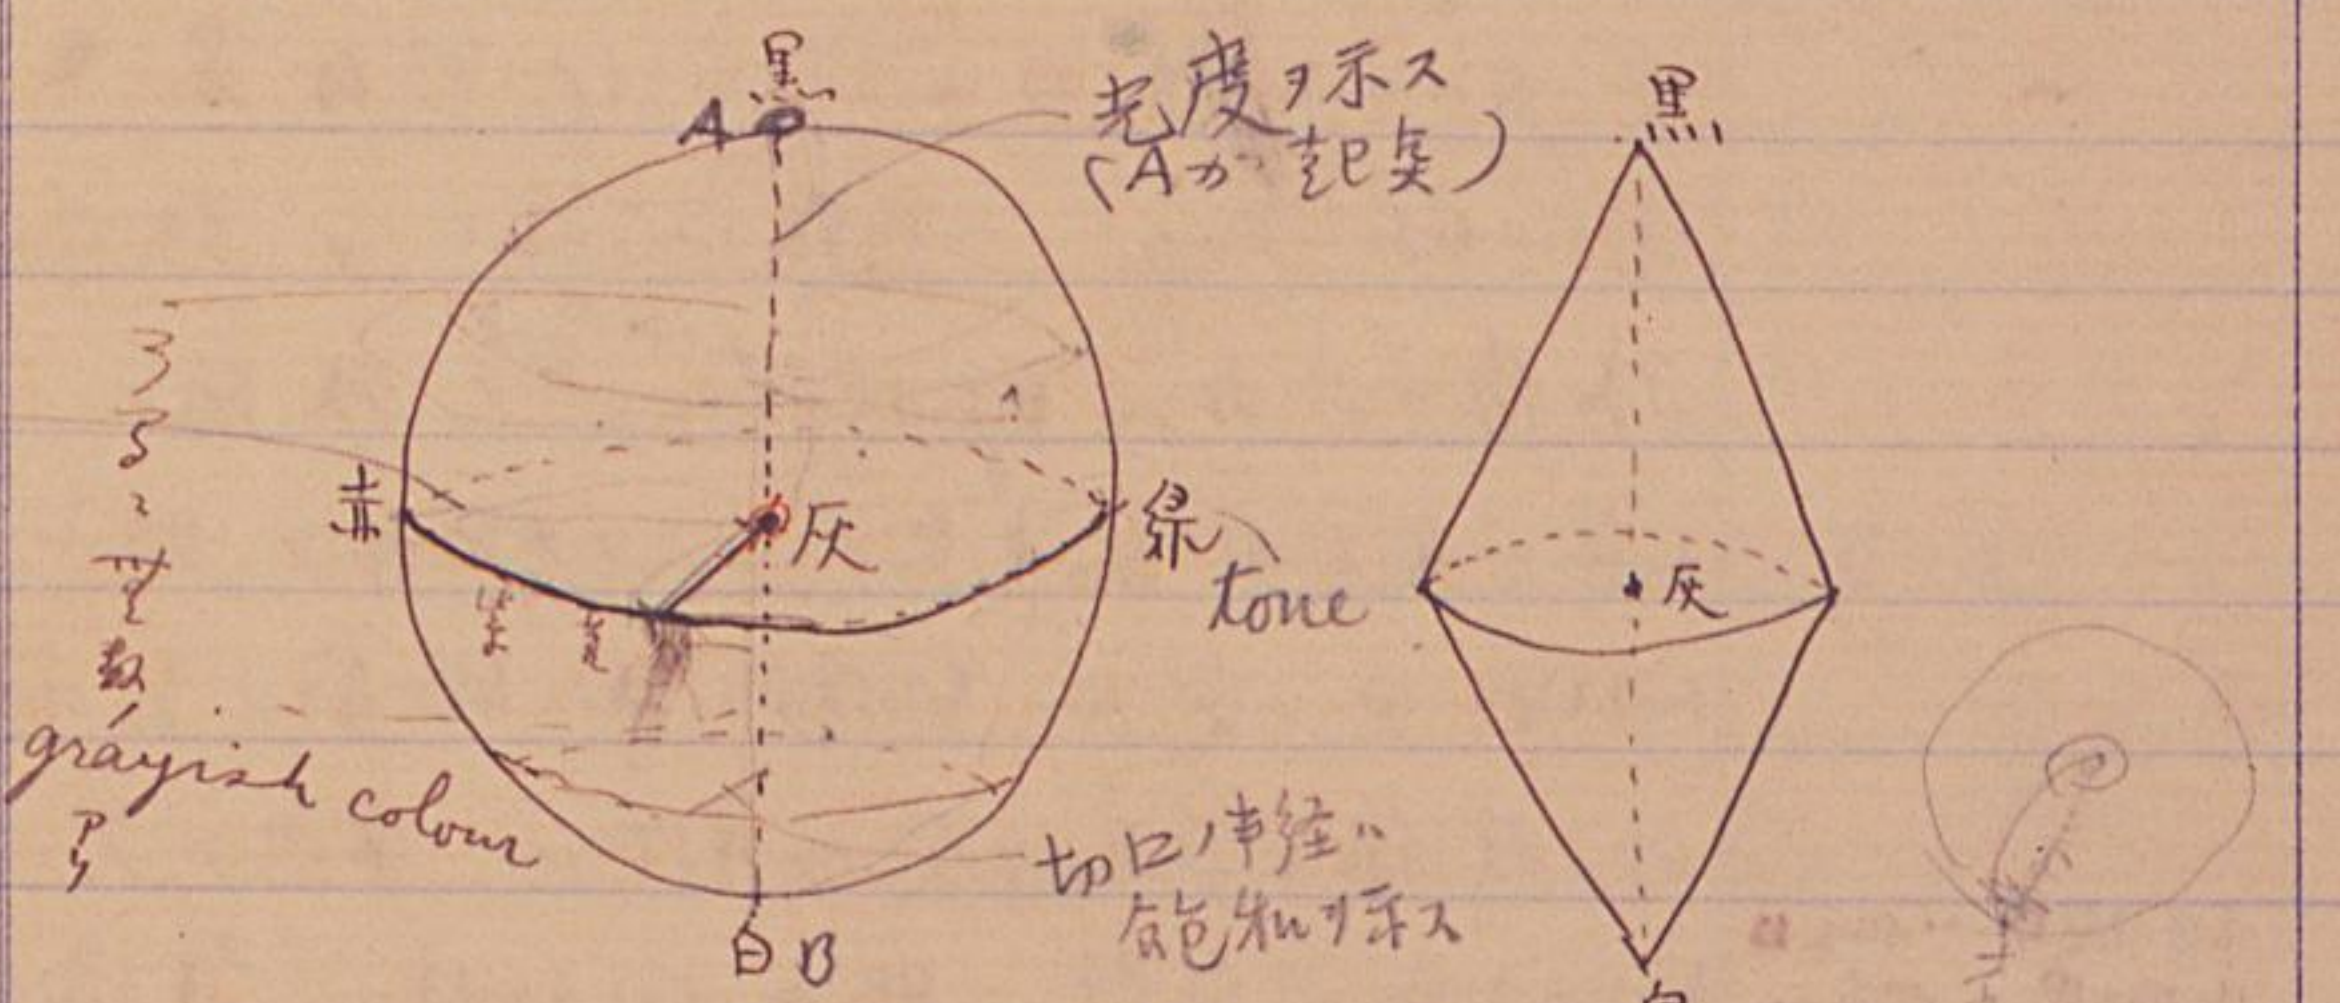 黒
A
光度ヲ示ス
(Aガ起点)
黒
赤
灰
緑
tone
灰
無
数
grayish colour
アリ
切口ノ半径ハ
飽和ヲ示ス
白 B
白